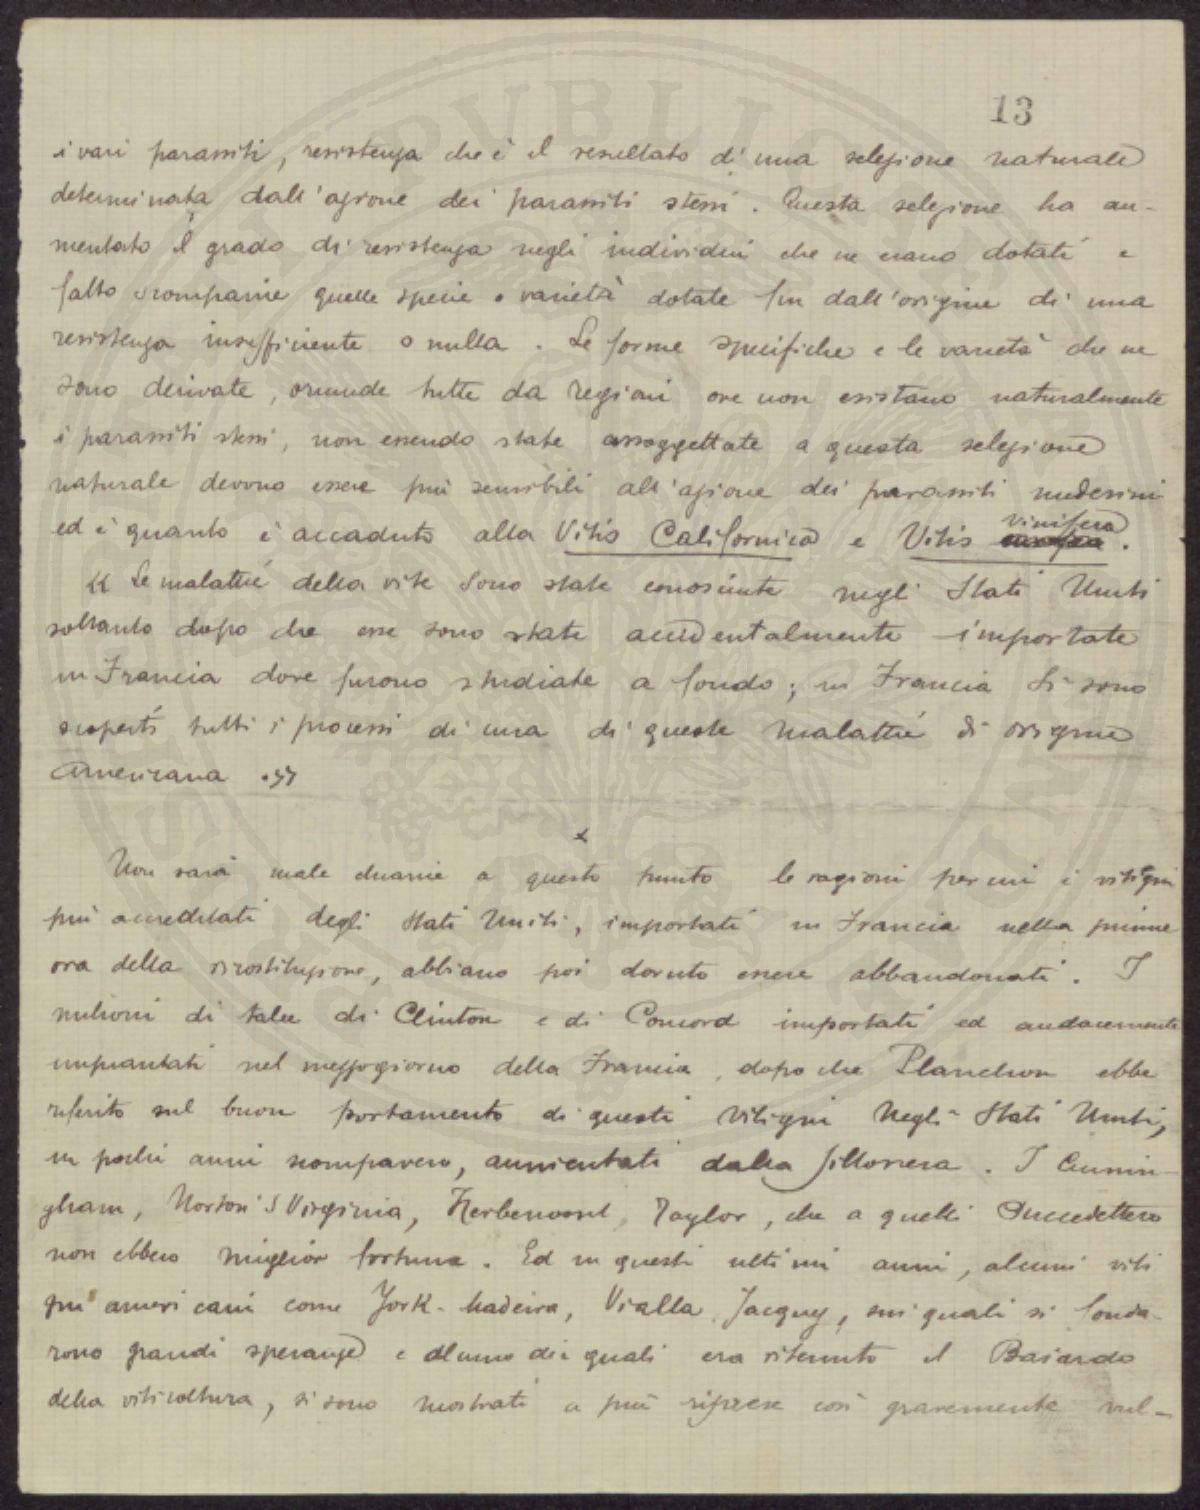 13
i vari parassiti, resistenza che è il resultato di una selezione naturale
determinata dall'azione dei parassiti stessi. Questa selezione ha au-
mentato il grado di resistenza negli individui che ne erano dotati e
fatto scomparire quelle specie o varietà dotate fin dall'origine di una
resistenza insufficiente o nulla. Le forme specifiche e le varietà che ne
sono derivate, oriunde tutte da regioni ove non esistano naturalmente
i parassiti stessi, non essendo state assoggettate a questa selezione
naturale devono essere più sensibili all'azione dei parassiti medesimi
ed è quanto è accaduto alla Vitis Californica e Vitis vinifera.
« Le malattie della vite sono state conosciute negli Stati Uniti
soltanto dopo che esse sono state accidentalmente importate
in Francia dove furono studiate a fondo; in Francia si sono
scoperti tutti i processi di cura di queste malattie di origine
Americana.»
x
Non sarà male chiarire a questo punto le ragioni per cui i vitigni
più accreditati degli Stati Uniti, importati in Francia nella prima
ora della ricostituzione, abbiano poi dovuto essere abbandonati. I
milioni di talee di Clinton e di Concord importati ed audacemente
impiantati nel mezzogiorno della Francia, dopo che Planchon ebbe
riferito sul buon portamento di questi vitigni negli Stati Uniti,
in pochi anni scomparvero, annientati dalla fillossera. I Cunnin-
gham, Norton's Virginia, Herbemont, Taylor, che a quelli succedettero
non ebbero miglior fortuna. Ed in questi ultimi anni, alcuni viti
gni americani come York-Madeira, Vialla, Jacquez, sui quali si fonda-
rono grandi speranze e alcuno dei quali era ritenuto il Baiardo
della viticoltura, si sono mostrati a più riprese così gravemente vul-